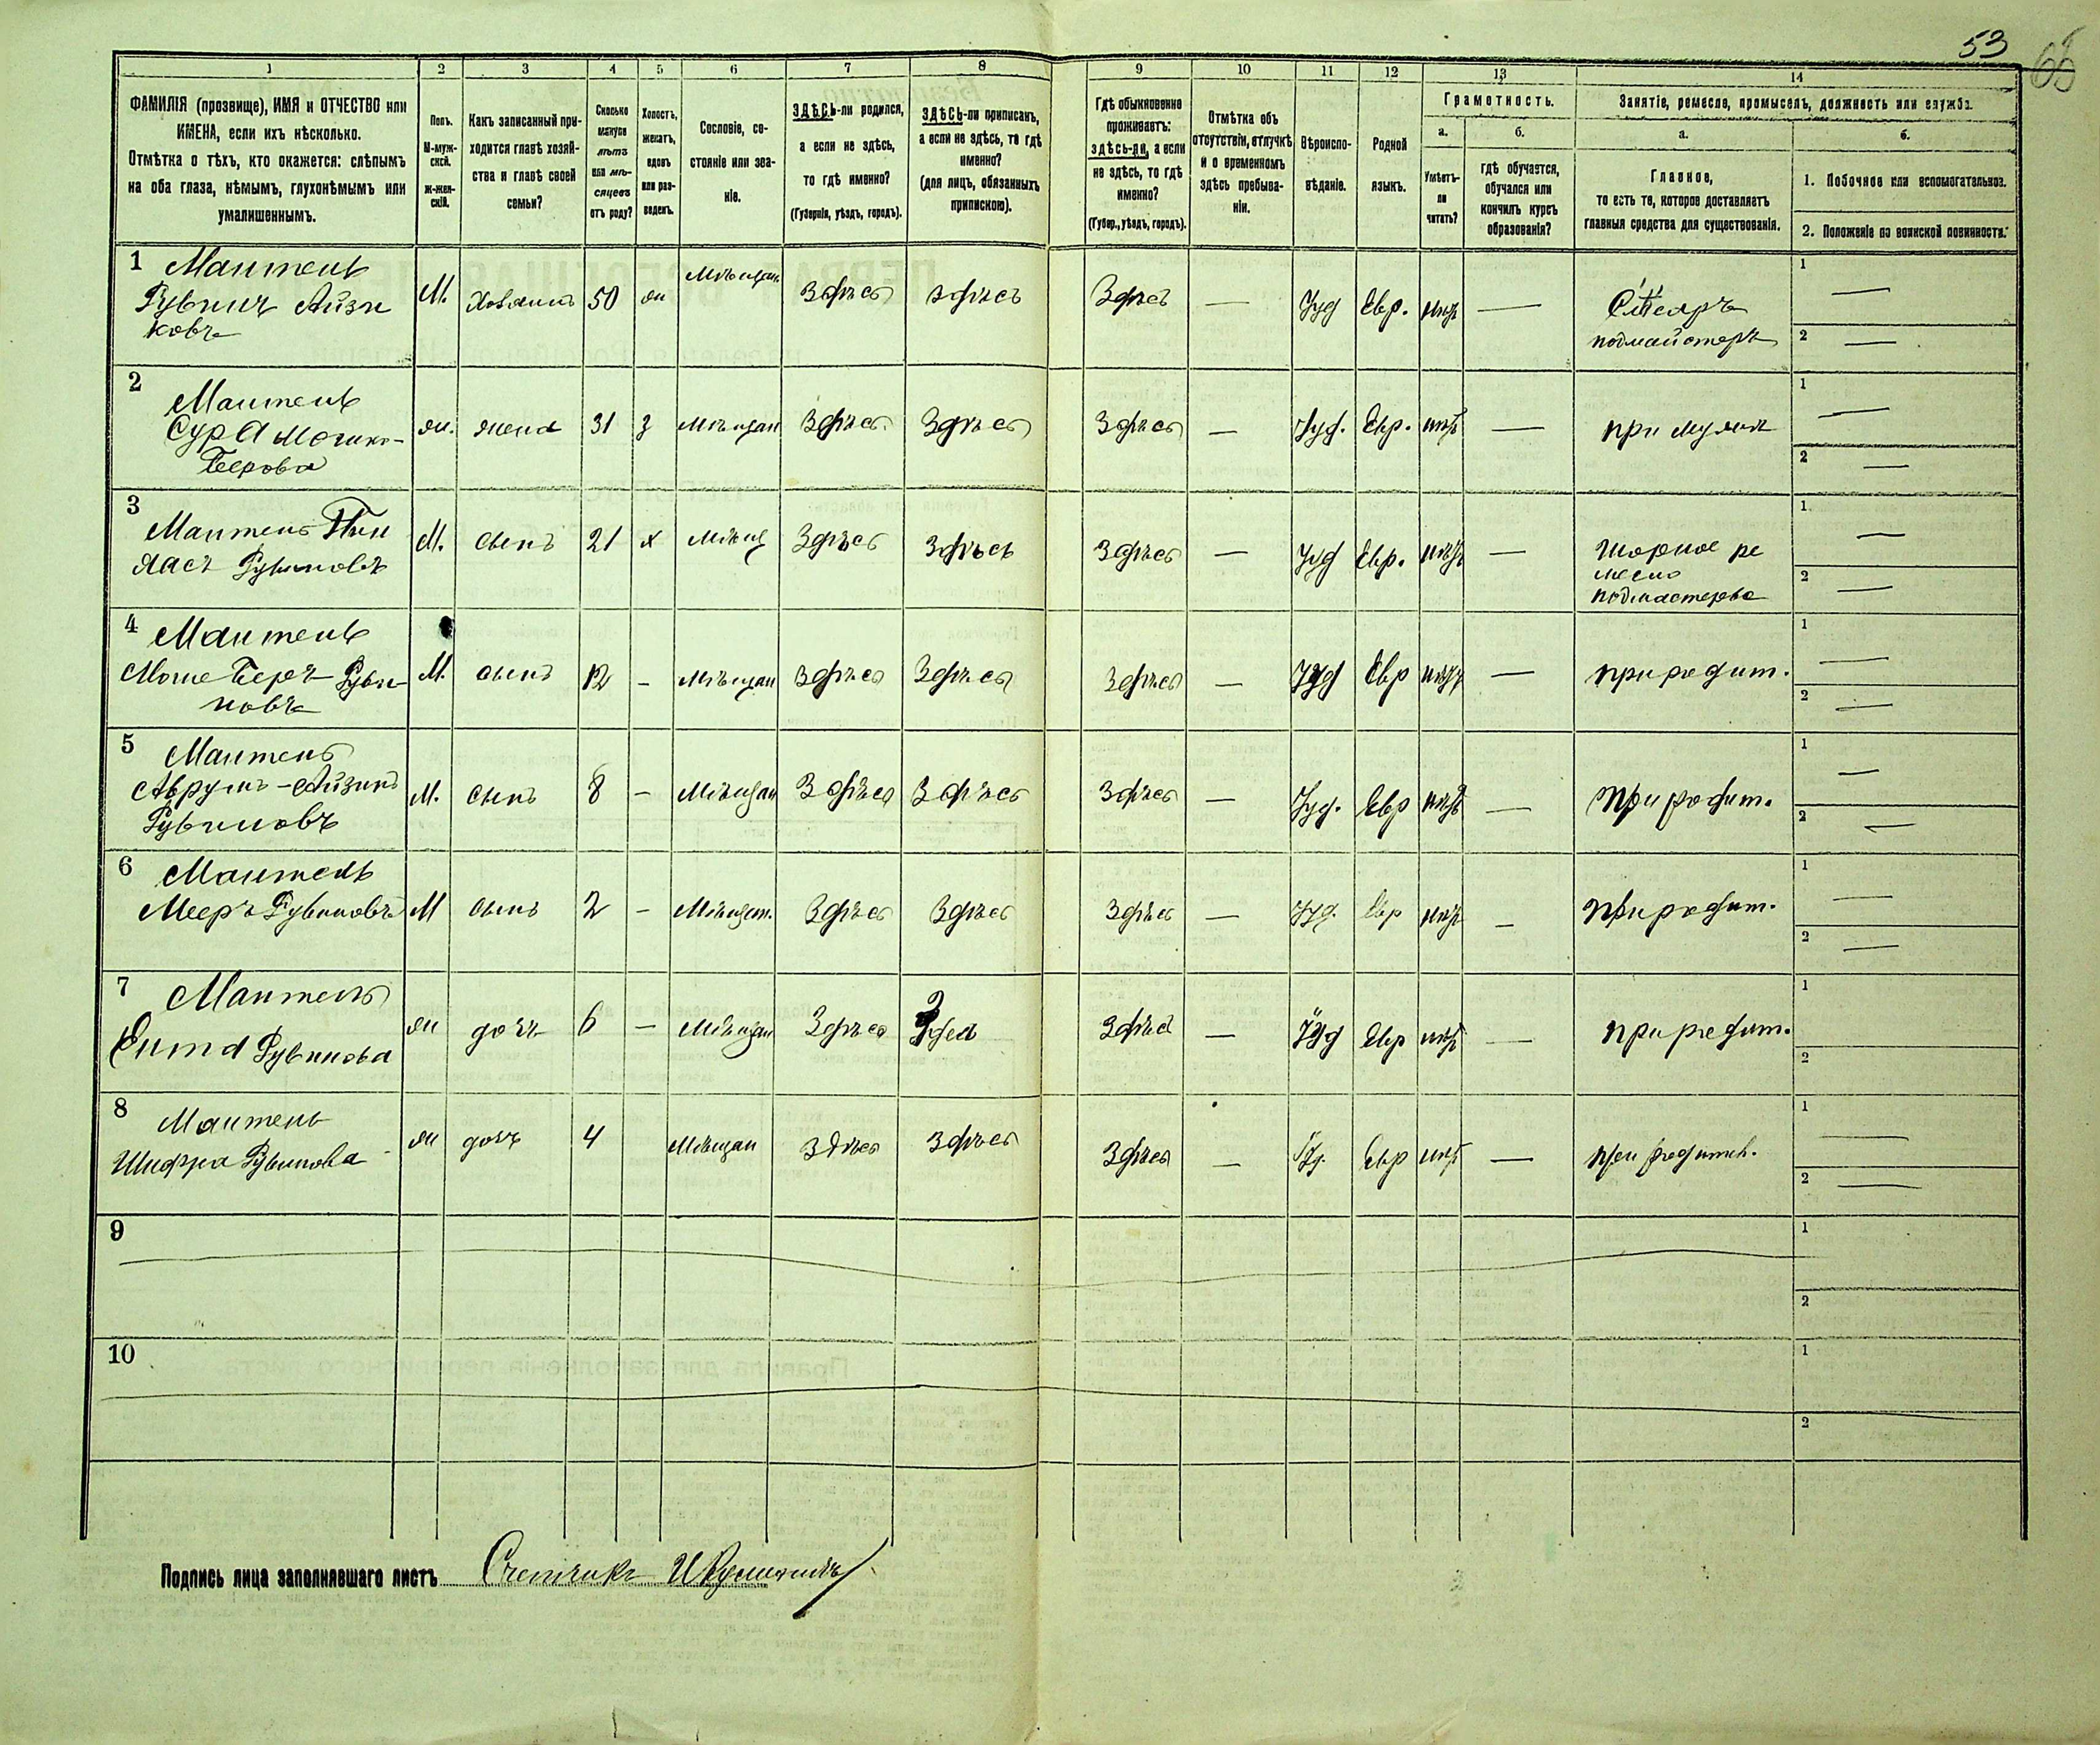 53
65
1 2 3 4 5 6 7 8 9 10 11 12 13 14
ФАМИЛІЯ (прозвище), ИМЯ и ОТЧЕСТВО или
ИМЕНА, если ихъ нѣсколько.
Отмѣтка о тѣхъ, кто окажется: слѣпымъ
на оба глаза, нѣмымъ, глухонѣмымъ или
умалишеннымъ.
Полъ.
М-муж-
ской.
ж-жен-
скій.
Какъ записанный при-
ходится главѣ хозяй-
ства и главѣ своей
семьи?
Сколько
минуло
лѣтъ
или мѣ-
сяцевъ
отъ роду?
Холостъ,
женатъ,
вдовъ
или раз-
веденъ.
Сословіе, со-
стояніе или зва-
ніе.
ЗДѢСЬ-ли родился,
а если не здѣсь,
то гдѣ именно?
(Губернія, уѣздъ, городъ).
ЗДѢСЬ-ли приписанъ,
а если не здѣсь, то гдѣ
именно?
(для лицъ, обязанныхъ
припискою).
Гдѣ обыкновенно
проживаетъ:
здѣсь-ли, а если
не здѣсь, то гдѣ
именно?
(Губер., уѣздъ, городъ).
Отмѣтка объ
отсутствіи, отлучкѣ
и о временномъ
здѣсь пребыва-
ніи.
Вѣроиспо-
вѣданіе.
Родной
языкъ.
Грамотность.
а.
Умѣетъ-
ли
читать?
б.
гдѣ обучается,
обучался или
кончилъ курсъ
образованія?
Занятіе, ремесло, промыселъ, должность или служба.
а.
Главное,
то есть то, которое доставляетъ
главныя средства для существованія.
б.
1. Побочное или вспомогательное.
2. Положеніе по воинской повинности.
1 Мантель
Рувинъ Айзи
ковъ
М. Хозяинъ 50 ж Мѣщан. Здѣсь здѣсь Здѣсь — Іуд Евр. нѣтъ —
Столяръ
подмайстеръ
1 —
2 —
2 Мантель
Сура Мошко-
Беерова
ж. жена 31 з Мѣщан Здѣсь Здѣсь Здѣсь — Іуд. Евр. нѣтъ — при мужѣ
1 —
2 —
3 Мантель Пин
хасъ Рувиновъ
М. сынъ 21 х Мѣщ Здѣсь Здѣсь Здѣсь — Іуд Евр. нѣтъ —
Шорное ре
месло
подмастерье
1 —
2 —
4 Мантель
Моше Беръ Руви-
новъ
М. сынъ 12 — Мѣщан Здѣсь Здѣсь Здѣсь — Іуд Евр нѣтъ — при родит.
1 —
2 —
5 Мантель
Аврумъ-Айзикъ
Рувиновъ
М. сынъ 8 — Мѣщан Здѣсь Здѣсь Здѣсь — Іуд. Евр нѣтъ — При родит.
1 —
2 —
6 Мантель
Мееръ Рувиновъ
М сынъ 2 — Мѣщан. Здѣсь Здѣсь Здѣсь — Іуд. Евр нѣтъ — При родит.
1 —
2 —
7 Мантель
Ента Рувинова
ж дочь 6 — Мѣщан Здѣсь Здѣсь Здѣсь — Іуд Евр нѣтъ — при родит.
1
2
8 Мантель
Шифра Рувинова
ж дочь 4 Мѣщан Здѣсь Здѣсь Здѣсь — Іуд. Евр нѣтъ — при родител.
1 —
2 —
9
1
2
10
1
2
Подпись лица заполнявшаго листъ Счетчикъ